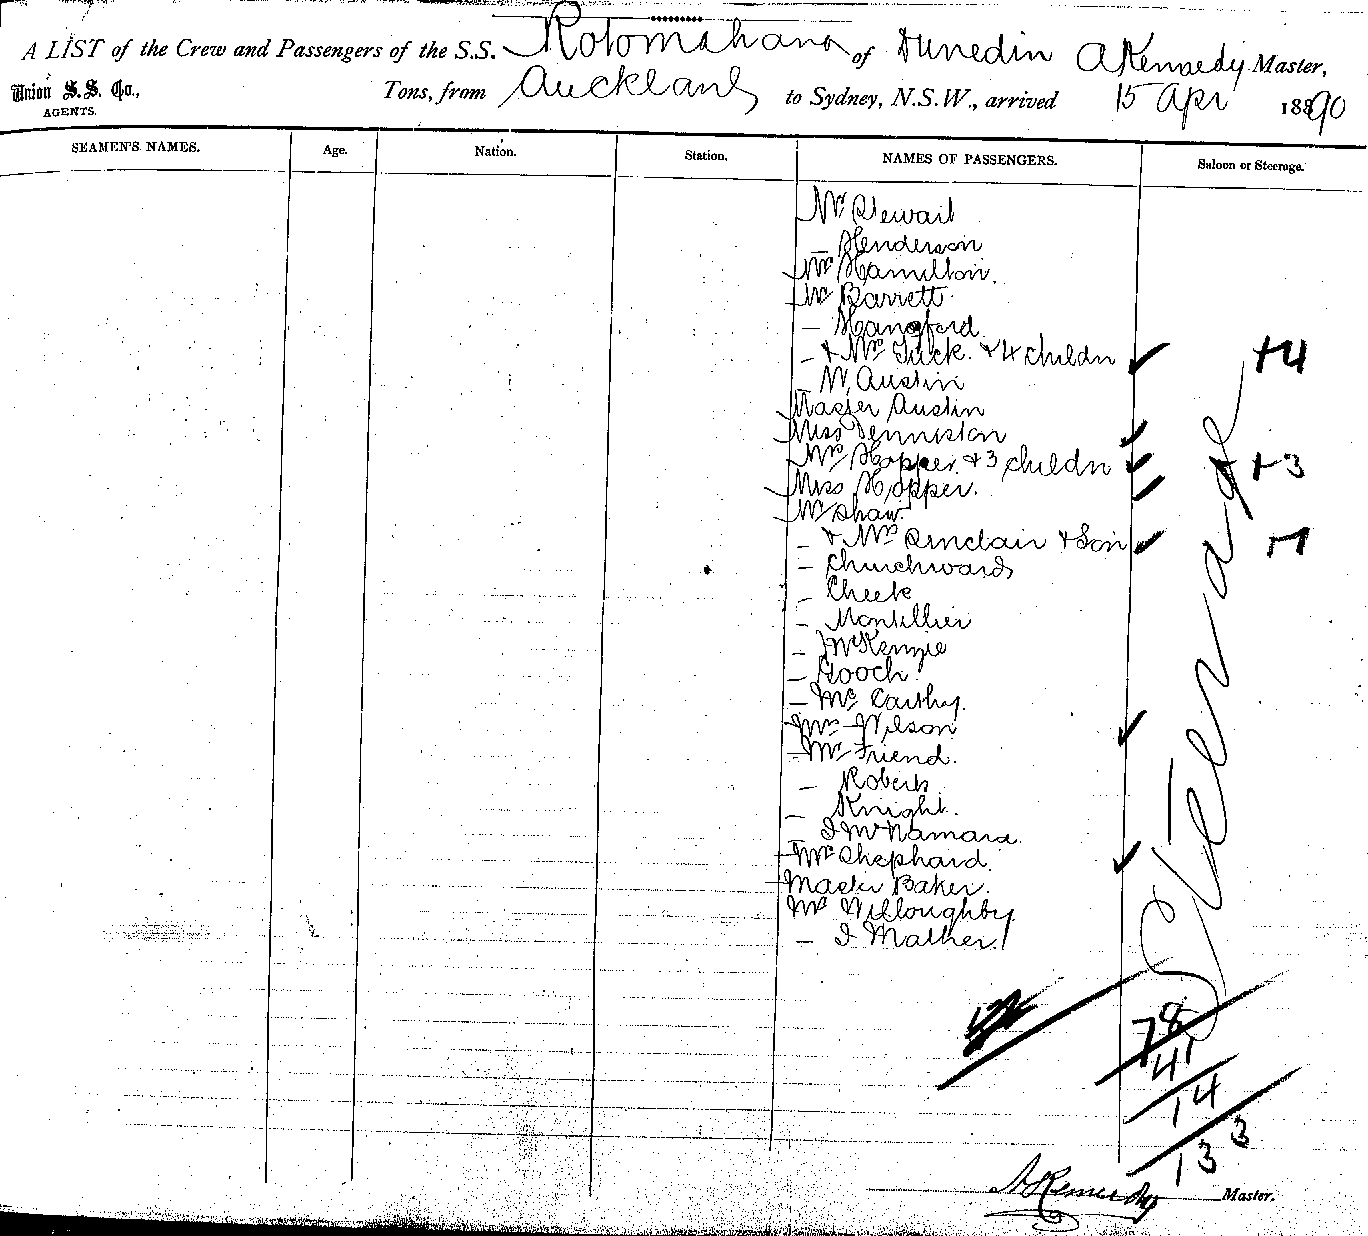 A LIST of the Crew and Passengers of the S.S. Rotomahana of Dunedin A Kennedy Master,
Union S.S. Co.,
AGENTS.
Tons, from Auckland to Sydney, N.S.W., arrived 15 Apr 1890
SEAMEN'S NAMES. Age. Nation. Station. NAMES OF PASSENGERS. Saloon or Steerage.
Mr Stewart
— Henderson
Mr Hamilton.
Mr Barrett
— Hangford
— & Mrs Tuck. & 4 childn ✓ +4
— W. Austin
Master Austin
Miss Denniston ✓
Mrs Hopper & 3 childn ✓ +3
Miss Hopper. ✓
Mr Shaw.
— & Mrs Sinclair & Son ✓ +1
— Churchward
— Cheek
— Montellier
— J McKenzie
— Gooch
— McCarthy.
Mrs Wilson ✓
Mr Friend.
— Roberts
— Knight.
— J McNamara
Mrs Shephard. ✓
Master Baker.
Mr Willoughby
— J Mather.
Steerage
78
41
14
133
A Kennedy Master.